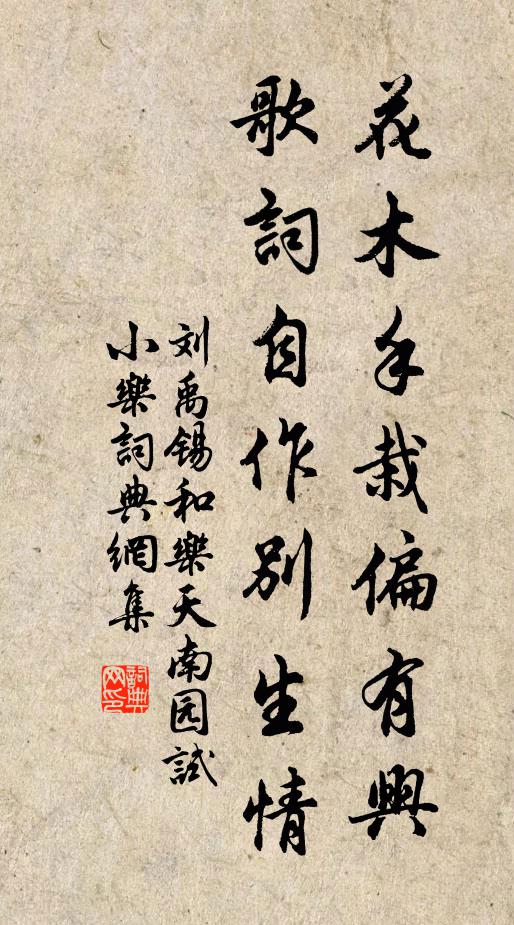 花木手栽偏有興
歌詞自作別生情
刘禹锡和樂天南园試
小樂詞典網集
詞典
网印